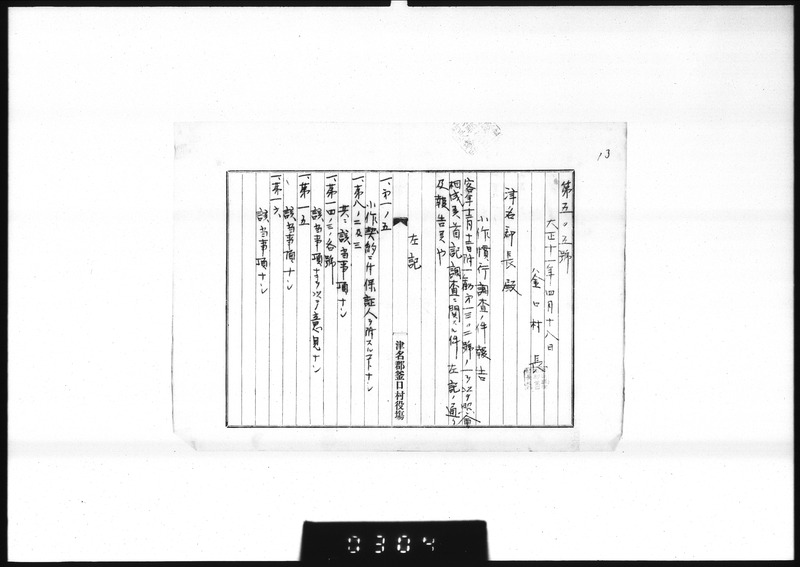 13
第五〇五號
大正十一年四月十八日
釜口村長
津名郡長殿
小作慣行調査ノ件報告
客年十二月十三日附
相成候首記調査ニ関スル件左記ノ通リ
及報告候也
左記
津名郡釜口村役場
一、第一ノ五
小作契約ニ付保証人ヲ附スルコトナシ
一、第八ノ二及三
共ニ該当事項ナシ
一、第一四ノ三ノ各號
該当事項ナキヲ以テ意見ナシ
一、第一五
該当事項ナシ
一、第一六、
該当事項ナシ
0304